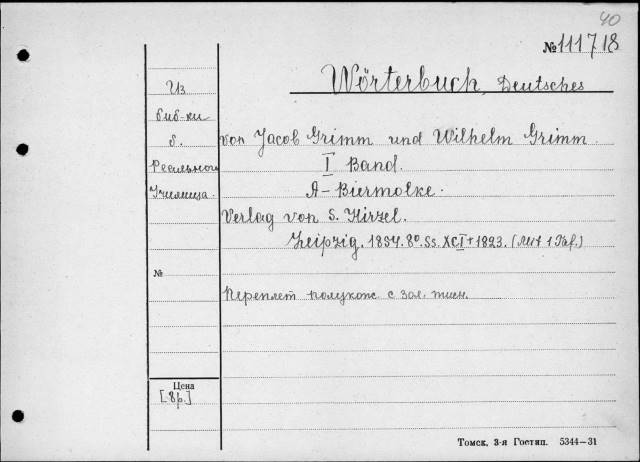 40
№ 111718
Wörterbuch, Deutsches
Из
биб-ки
б.
Реального
Училища.
von Jacob Grimm und Wilhelm Grimm.
I Band.
A–Biermolke.
Verlag von S. Hirzel.
Leipzig. 1854. 8º. Ss. XCI + 1823. (Mit 1 Taf.)
№
Переплет полукож с зол. тисн.
Цена
[8р.]
Томск, 3-я Гостип. 5344—31